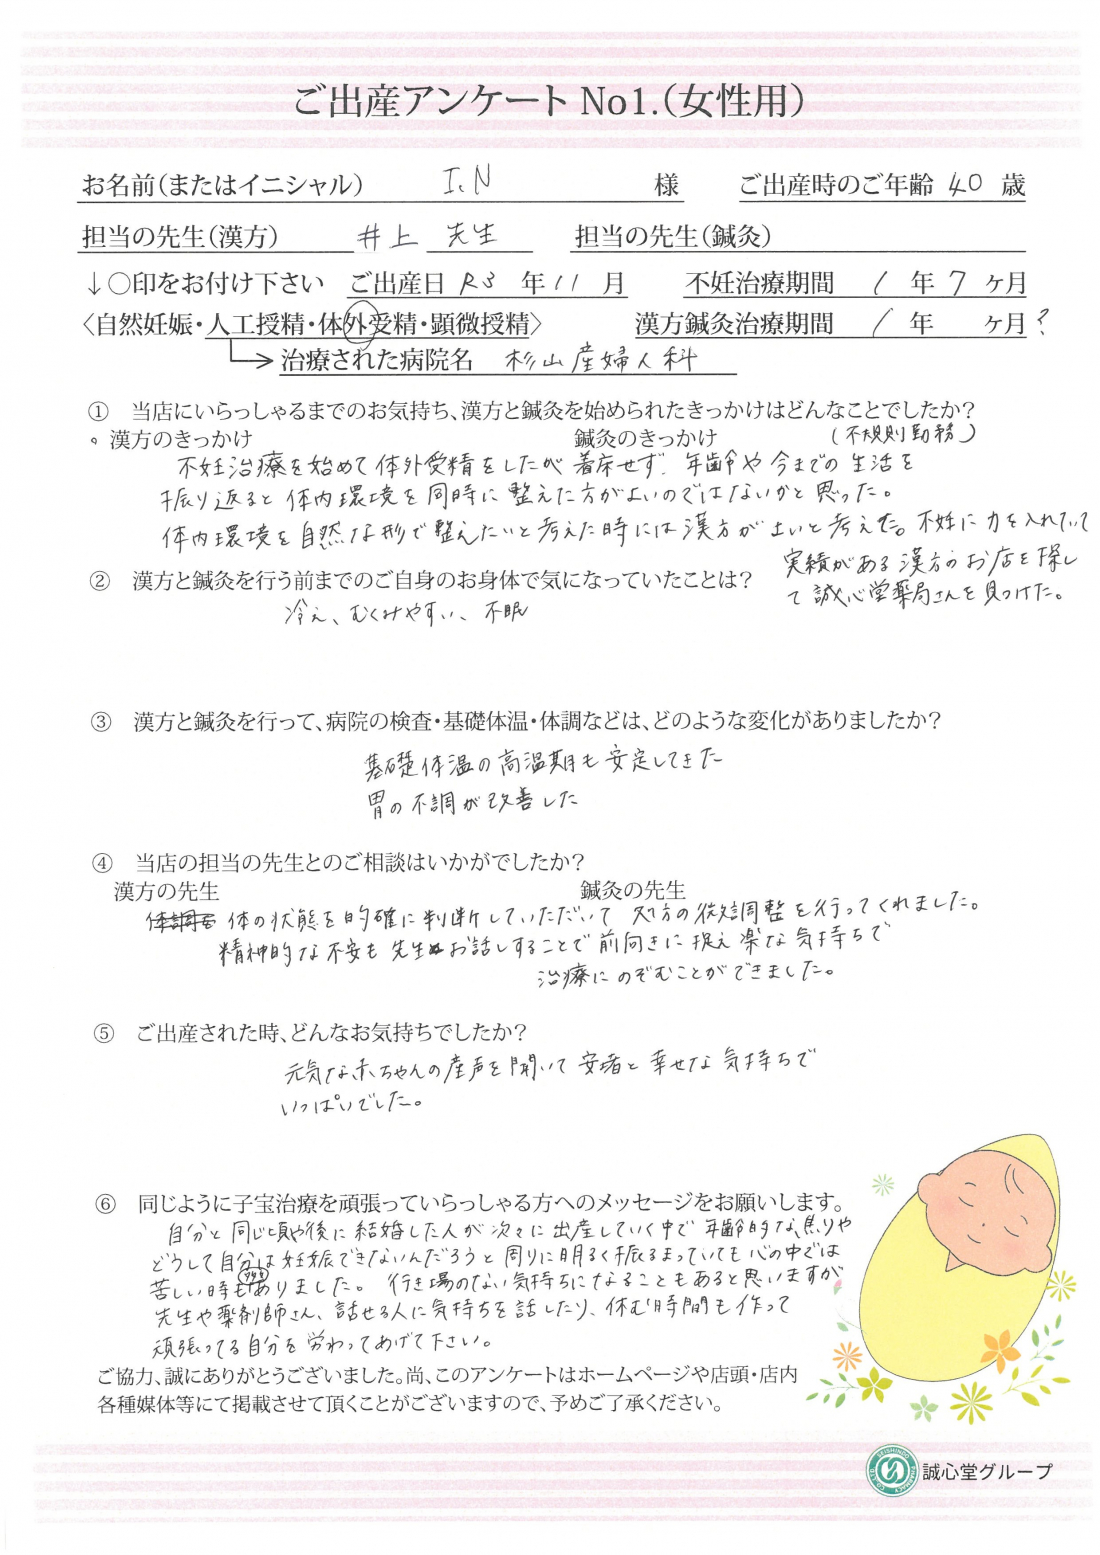 ご出産アンケート No1.(女性用)
お名前(またはイニシャル) I.N 様 ご出産時のご年齢 40 歳
担当の先生(漢方) 井上 先生 担当の先生(鍼灸)
↓〇印をお付け下さい ご出産日 R3 年 11 月 不妊治療期間 1 年 7 ヶ月
〈自然妊娠・人工授精・体外受精・顕微授精〉 漢方鍼灸治療期間 1 年 ヶ月?
治療された病院名 杉山産婦人科
① 当店にいらっしゃるまでのお気持ち、漢方と鍼灸を始められたきっかけはどんなことでしたか?
。漢方のきっかけ 鍼灸のきっかけ (不規則勤務)
不妊治療を始めて体外受精をしたが着床せず、年齢や今までの生活を
振り返ると体内環境を同時に整えた方がよいのではないかと思った。
体内環境を自然な形で整えたいと考えた時には漢方が良いと考えた。不妊に力を入れていて
実績がある漢方のお店を探し
て誠心堂薬局さんを見つけた。
② 漢方と鍼灸を行う前までのご自身のお身体で気になっていたことは?
冷え、むくみやすい、不眠
③ 漢方と鍼灸を行って、病院の検査・基礎体温・体調などは、どのような変化がありましたか?
基礎体温の高温期も安定してきた
胃の不調が改善した
④ 当店の担当の先生とのご相談はいかがでしたか?
漢方の先生 鍼灸の先生
体の状態を的確に判断していただいて 処方の微調整を行ってくれました。
精神的な不安も先生とお話しすることで前向きに捉え楽な気持ちで
治療にのぞむことができました。
⑤ ご出産された時、どんなお気持ちでしたか?
元気な赤ちゃんの産声を聞いて安堵と幸せな気持ちで
いっぱいでした。
⑥ 同じように子宝治療を頑張っていらっしゃる方へのメッセージをお願いします。
自分と同じ頃や後に結婚した人が次々に出産していく中で年齢的な焦りや
どうして自分は妊娠できないんだろうと周りに明るく振るまっていても心の中では
苦しい時もありました。行き場のない気持ちになることもあると思いますが
先生や薬剤師さん、話せる人に気持ちを話したり、休む時間も作って
頑張ってる自分を労わってあげて下さい。
ご協力、誠にありがとうございました。尚、このアンケートはホームページや店頭・店内
各種媒体等にて掲載させて頂くことがございますので、予めご了承ください。
誠心堂グループ